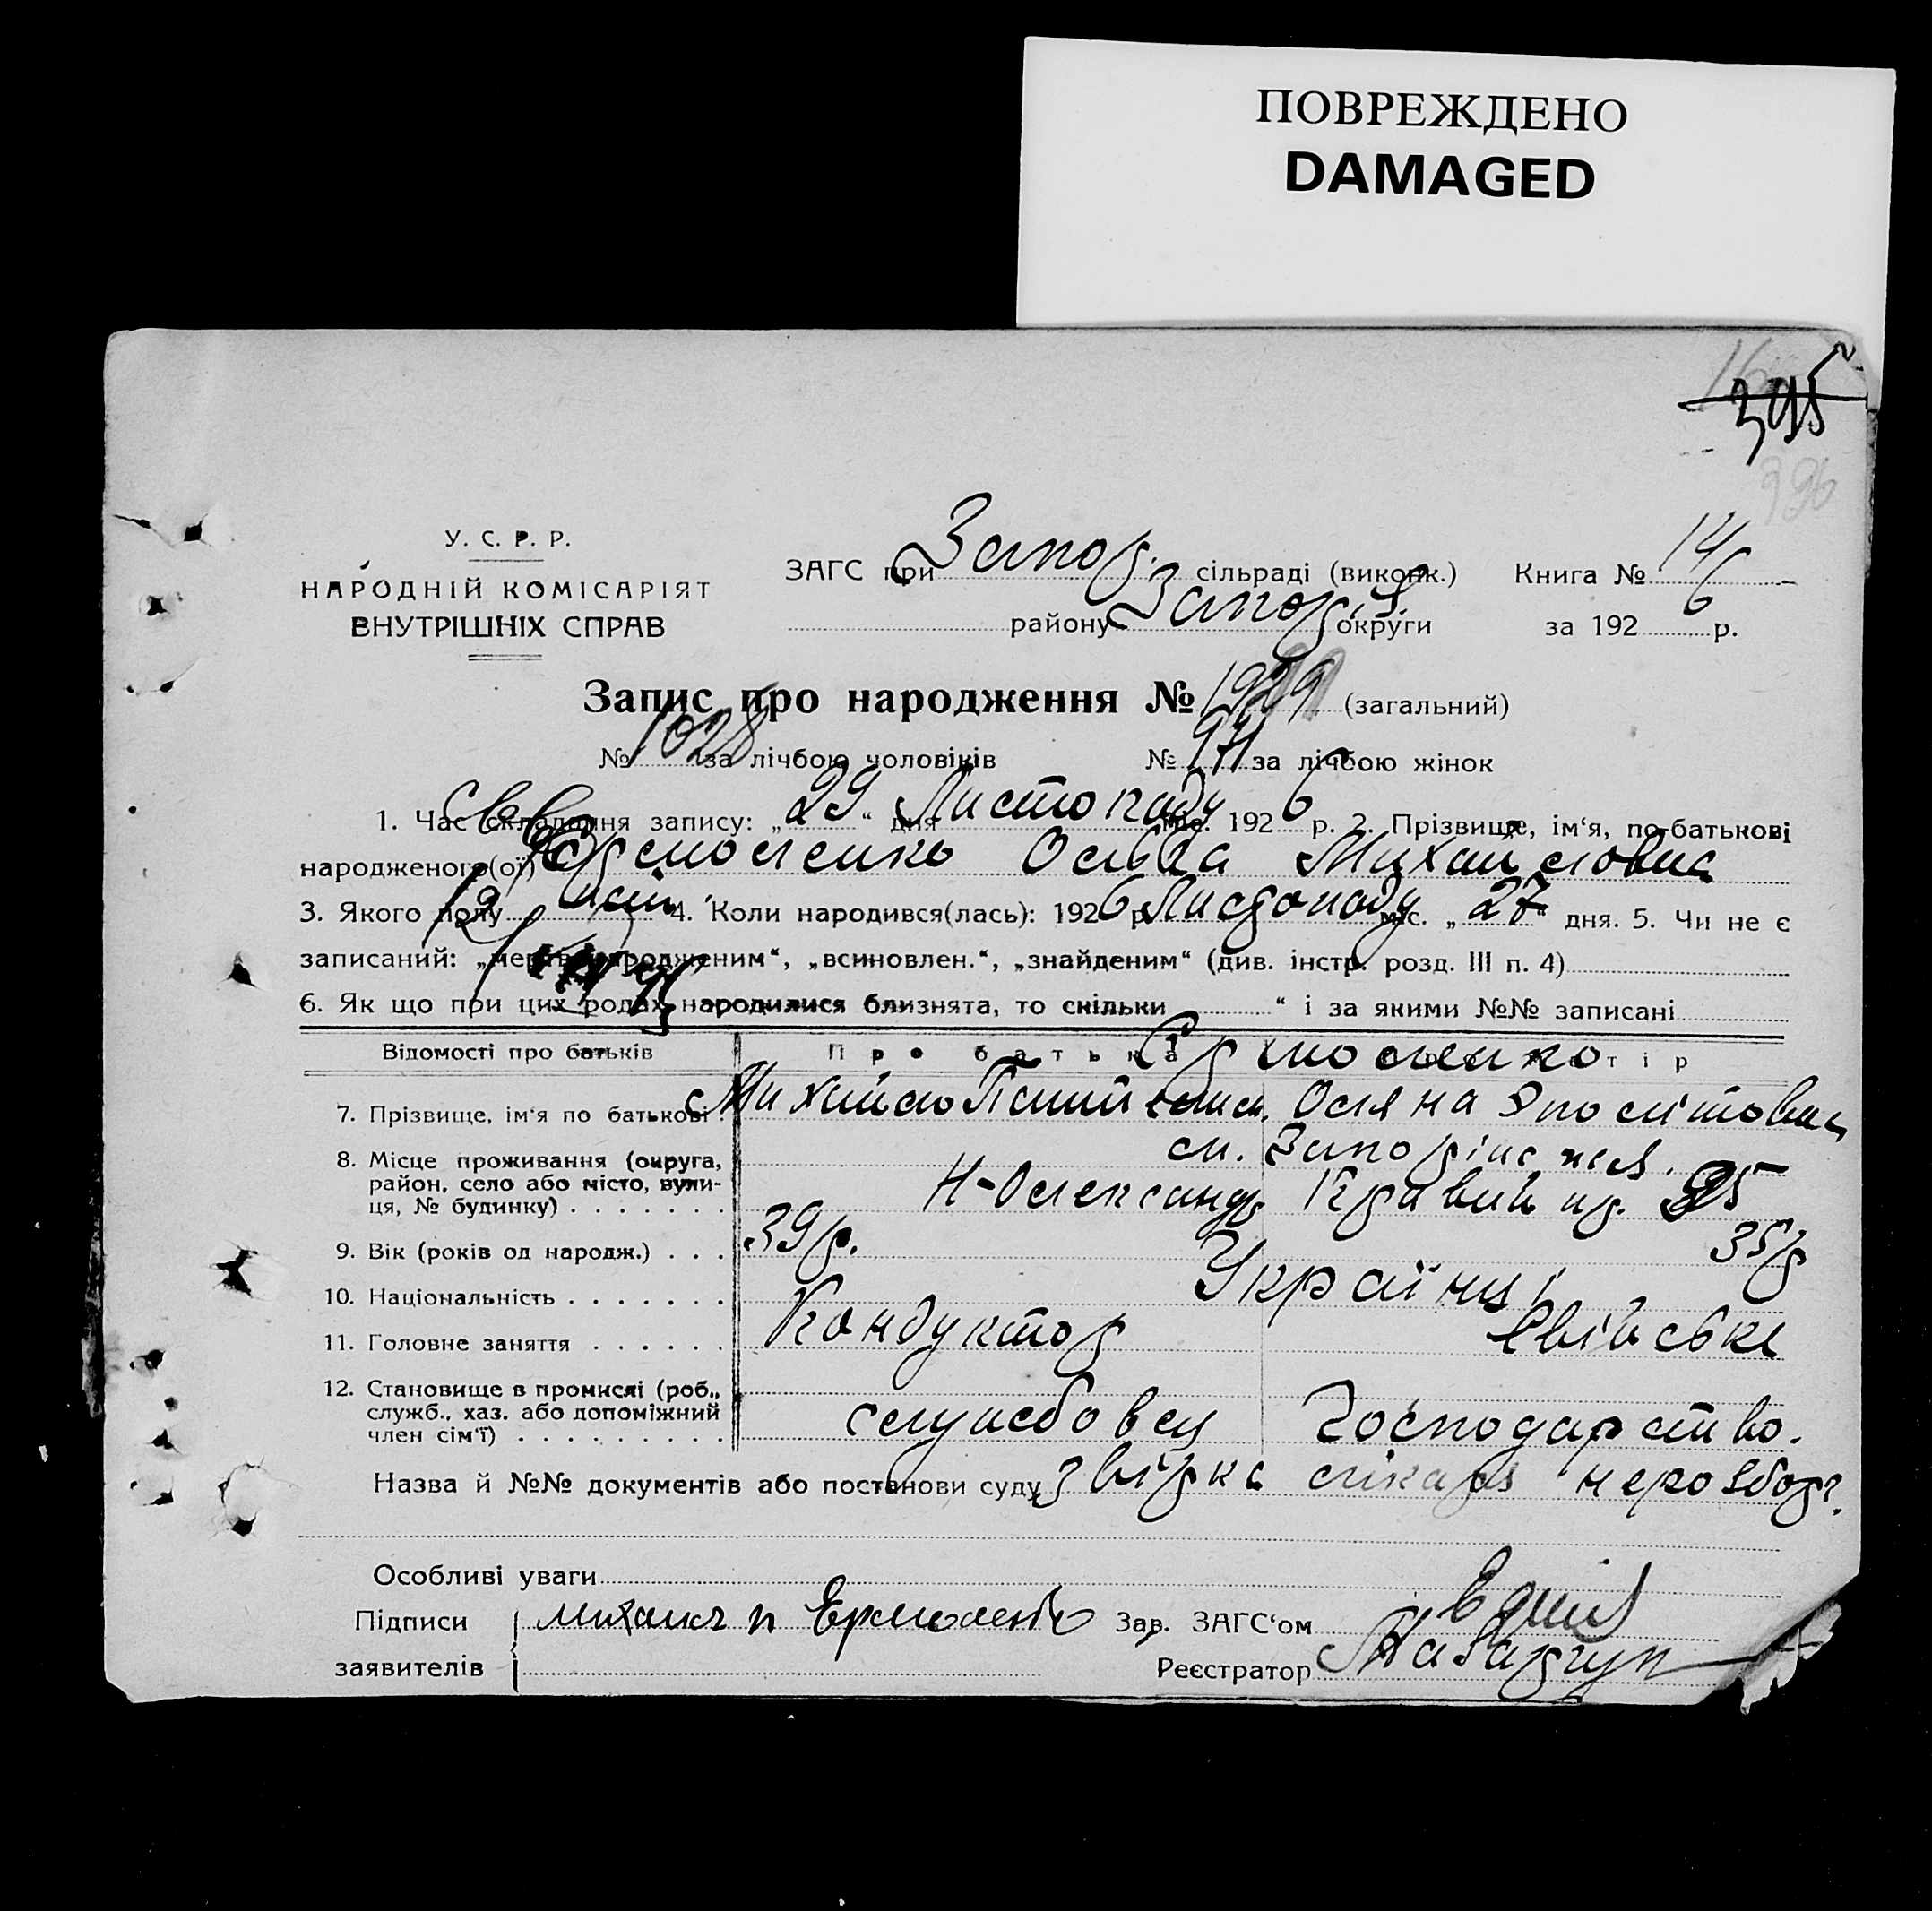 ПОВРЕЖДЕНО
DAMAGED
395
396
У. С. Р. Р.
НАРОДНІЙ КОМІСАРІЯТ
ВНУТРІШНІХ СПРАВ
ЗАГС при Запор. сільраді (виконк.) Книга № 14
району Запоріз. округи за 1926 р.
Запис про народження № (загальний)
№ 1028 за лічбою чоловіків № 971 за лічбою жінок
1. Час складання запису: „29“ дня Листопаду міс. 1926 р. 2. Прізвище, ім‘я, по-батькові
народженого(ої) Єрмоленко Ольга Михайловна
3. Якого полу жін. 4. Коли народився(лась): 1926 р. Листопаду міс. „27“ дня. 5. Чи не є
записаний: „мертвонародженим“, „всиновлен.“, „знайденим“ (див. інстр. розд. III п. 4)
6. Як що при цих родах народилися близнята, то скільки “ і за якими №№ записані
Відомості про батьків Про батька Єрмоленко Про матір
7. Прізвище, ім‘я по батькові Михайло Оляна
8. Місце проживання (округа, район, село або місто, вулиця, № будинку) ст. Запоріжжя.
Н-Олександр 25
9. Вік (років од народж.) 39 р. 35 р
10. Національність Українці
11. Головне заняття Кондуктор Свійське
12. Становище в промислі (роб., служб., хаз. або допоміжний член сім‘ї) службовец господарство.
Назва й №№ документів або постанови суду Звірка лікаря
Особливі уваги
Підписи Михаил П Ермоленко Зав. ЗАГС‘ом
заявителів Реєстратор